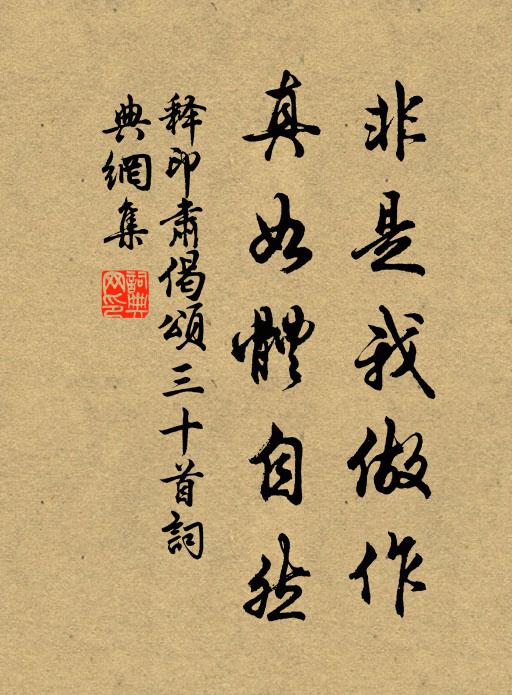 非是我做作
真如體自然
释印肃偈頌三十首詞
典網集
詞典网印